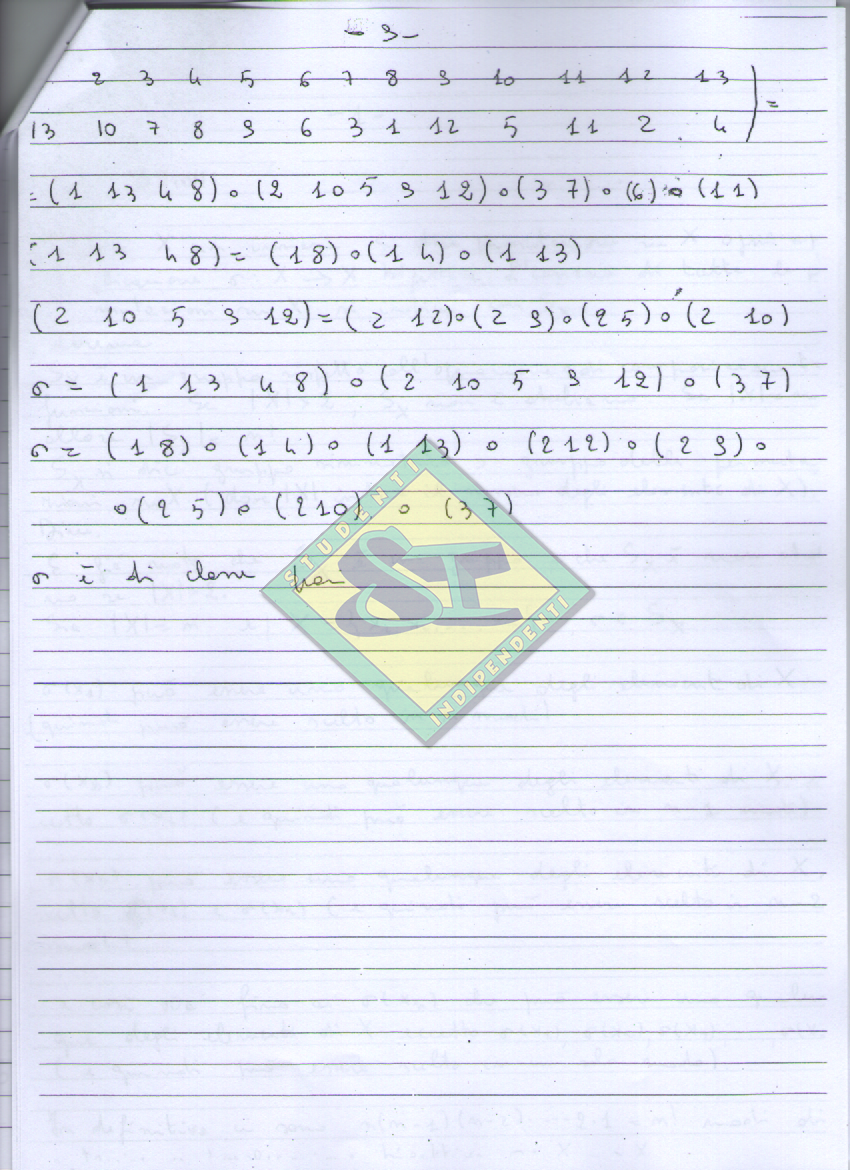 - 9 -
2 3 4 5 6 7 8 9 10 11 12 13
13 10 7 8 9 6 3 1 12 5 11 2 4 ) =
= (1 13 4 8) ∘ (2 10 5 9 12) ∘ (3 7) ∘ (6) ∘ (11)
(1 13 4 8) = (1 8) ∘ (1 4) ∘ (1 13)
(2 10 5 9 12) = (2 12) ∘ (2 9) ∘ (2 5) ∘ (2 10)
σ = (1 13 4 8) ∘ (2 10 5 9 12) ∘ (3 7)
σ = (1 8) ∘ (1 4) ∘ (1 13) ∘ (2 12) ∘ (2 9) ∘
∘ (2 5) ∘ (2 10) ∘ (3 7)
σ è di classe pari
STUDENTI
SI
INDIPENDENTI